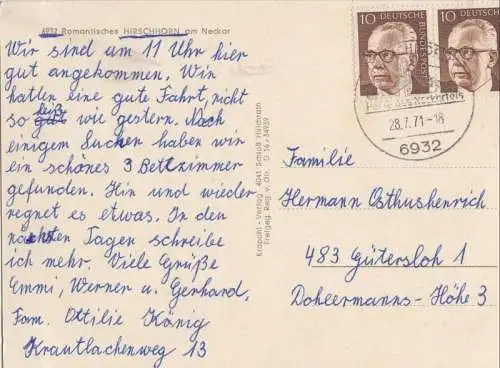 6932 Romantisches HIRSCHHORN am Neckar
Wir sind um 11 Uhr hier
gut angekommen. Wir
hatten eine gute Fahrt, nicht
so heiß wie gestern. Nach
einigem Suchen haben wir
ein schönes 3 Bettzimmer
gefunden. Hin und wieder
regnet es etwas. In den
nächsten Tagen schreibe
ich mehr. Viele Grüße
Emmi, Werner u. Gerhard,
Fam. Ottilie König
Krautlachenweg 13
Krapohl-Verlag 4041 Schloß Hülchrath
Freigeg. Reg. v. Obb.
10 DEUTSCHE BUNDESPOST
10 DEUTSCHE
28.7.71-18
6932
Familie
Hermann Osthushenrich
483 Gütersloh 1
Doheermanns-Höhe 3